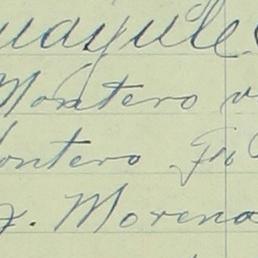 uayule
Montero v
ontero
z. Morena